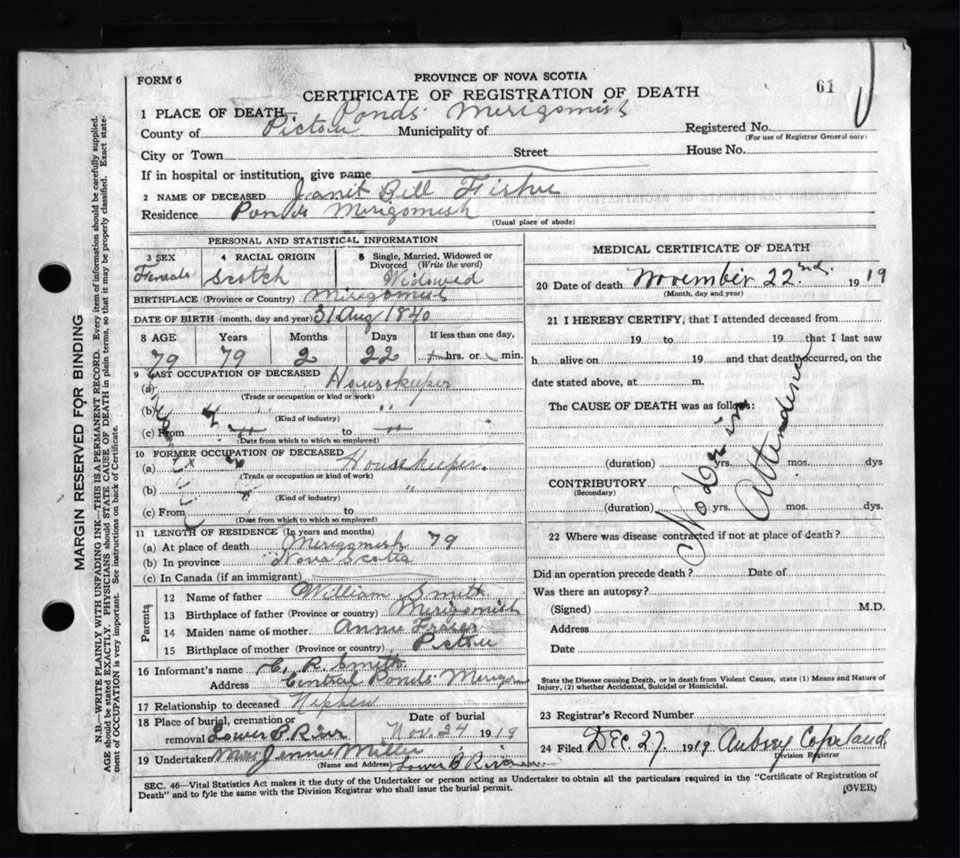 FORM 6
PROVINCE OF NOVA SCOTIA
61
CERTIFICATE OF REGISTRATION OF DEATH
1 PLACE OF DEATH, Ponds Merigomish
County of Pictou Municipality of Registered No.
(For use of Registrar General only)
City or Town Street House No.
If in hospital or institution, give name
2 NAME OF DECEASED Janit Bell Fisher
Residence Ponds Merigomish
(Usual place of abode)
PERSONAL AND STATISTICAL INFORMATION
3 SEX Female
4 RACIAL ORIGIN Scotch
5 Single, Married, Widowed or Divorced (Write the word) Widowed
BIRTHPLACE (Province or Country) Mirigomish
DATE OF BIRTH (month, day and year) 31 Aug 1840
8 AGE Years Months Days If less than one day,
79 79 2 22 hrs. or min.
9 LAST OCCUPATION OF DECEASED
(a) Housekeeper
(Trade or occupation or kind of work)
(b) "
(Kind of industry)
(c) From " to "
(Date from which to which so employed)
10 FORMER OCCUPATION OF DECEASED
(a) Housekeeper.
(Trade or occupation or kind of work)
(b) "
(Kind of industry)
(c) From to
(Date from which to which so employed)
11 LENGTH OF RESIDENCE (In years and months)
(a) At place of death Merigomish 79
(b) In province Nova Scotia
(c) In Canada (if an immigrant)
Parents
12 Name of father William Smith
13 Birthplace of father (Province or country) Merigomish
14 Maiden name of mother Annie Frazer
15 Birthplace of mother (Province or country) Pictou
16 Informant's name C. R. Smith
Address Central Ponds Merigom
17 Relationship to deceased Nephew
18 Place of burial, cremation or removal Lower B. River
Date of burial Nov. 24 1919
19 Undertaker Mrs Jennie Miller
(Name and Address) Lower B River
MEDICAL CERTIFICATE OF DEATH
20 Date of death November 22nd. 1919
(Month, day and year)
21 I HEREBY CERTIFY, that I attended deceased from
19 to 19 that I last saw
h alive on 19 and that death occurred, on the
date stated above, at m.
The CAUSE OF DEATH was as follows:
No Dr in Attendence
(duration) yrs. mos. dys
CONTRIBUTORY
(Secondary)
(duration) yrs. mos. dys.
22 Where was disease contracted if not at place of death?
Did an operation precede death? Date of
Was there an autopsy?
(Signed) M.D.
Address
Date
State the Disease causing Death, or in death from Violent Causes, state (1) Means and Nature of
Injury, (2) whether Accidental, Suicidal or Homicidal.
23 Registrar's Record Number
24 Filed Dec. 27. 1919. Aubrey Copeland.
Division Registrar
SEC. 46—Vital Statistics Act makes it the duty of the Undertaker or person acting as Undertaker to obtain all the particulars required in the "Certificate of Registration of
Death" and to fyle the same with the Division Registrar who shall issue the burial permit.
(OVER)
MARGIN RESERVED FOR BINDING
N.B.—WRITE PLAINLY WITH UNFADING INK—THIS IS A PERMANENT RECORD. Every item of information should be carefully supplied.
AGE should be stated EXACTLY. PHYSICIANS should STATE CAUSE OF DEATH in plain terms, so that it may be properly classified. Exact state-
ment of OCCUPATION is very important. See instructions on back of Certificate.